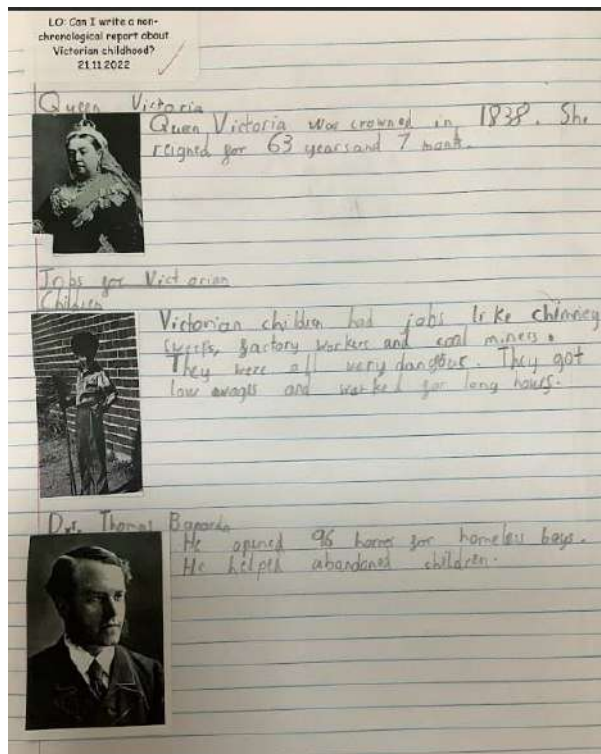 LO: Can I write a non-
chronological report about
Victorian childhood?
21.11.2022
Queen Victoria
Queen Victoria was crowned in 1838. She
reigned for 63 years and 7 month.
Jobs for Victorian
Children
Victorian children had jobs like chimney
sweeps, factory workers and coal miners.
They were all very dangous. They got
low wages and worked for long hours.
Thomas Banardo
He opened 96 homes for homeless boys.
He helped abandoned children.